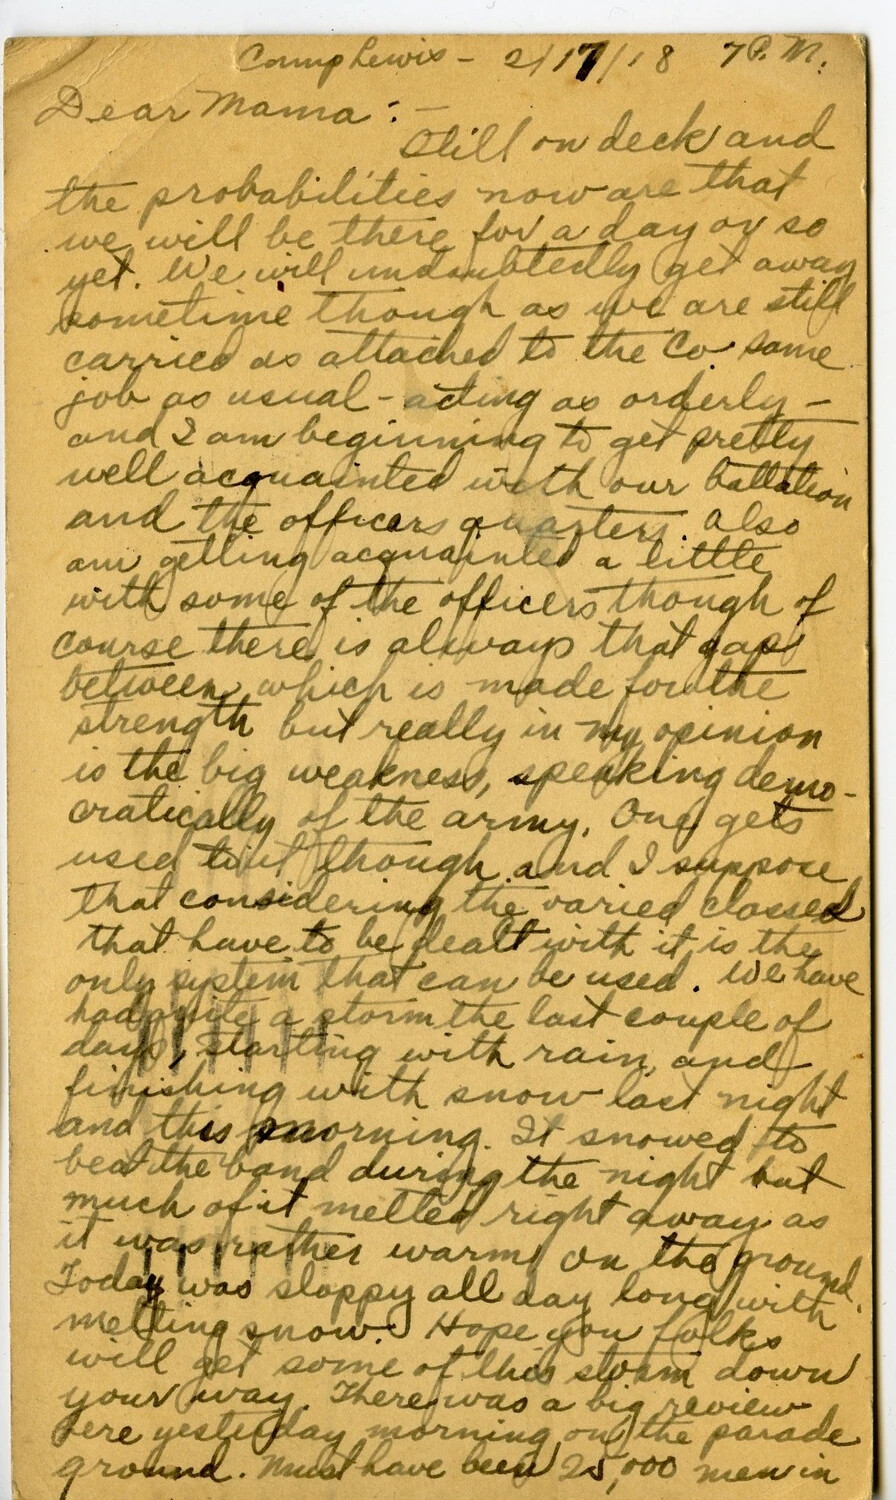 Camp Lewis - 2/17/18 7 P.M.
Dear Mama: -
Still on deck and
the probabilities now are that
we will be there for a day or so
yet. We will undoubtedly get away
sometime though as we are still
carried as attached to the Co. Same
job as usual - acting as orderly -
and I am beginning to get pretty
well acquainted with our battalion
and the officers quarters. Also
am getting acquainted a little
with some of the officers though of
course there is always that gap
between which is made for the
strength but really in my opinion
is the big weakness, speaking demo-
cratically of the army. One gets
used to it though and I suppose
that considering the varied classes
that have to be dealt with it is the
only system that can be used. We have
had quite a storm the last couple of
days, starting with rain, and
finishing with snow last night
and this morning. It snowed to
beat the band during the night but
much of it melted right away as
it was rather warm on the ground.
Today was sloppy all day long with
melting snow. Hope you folks
will get some of this storm down
your way. There was a big review
here yesterday morning on the parade
ground. Must have been 25,000 men in